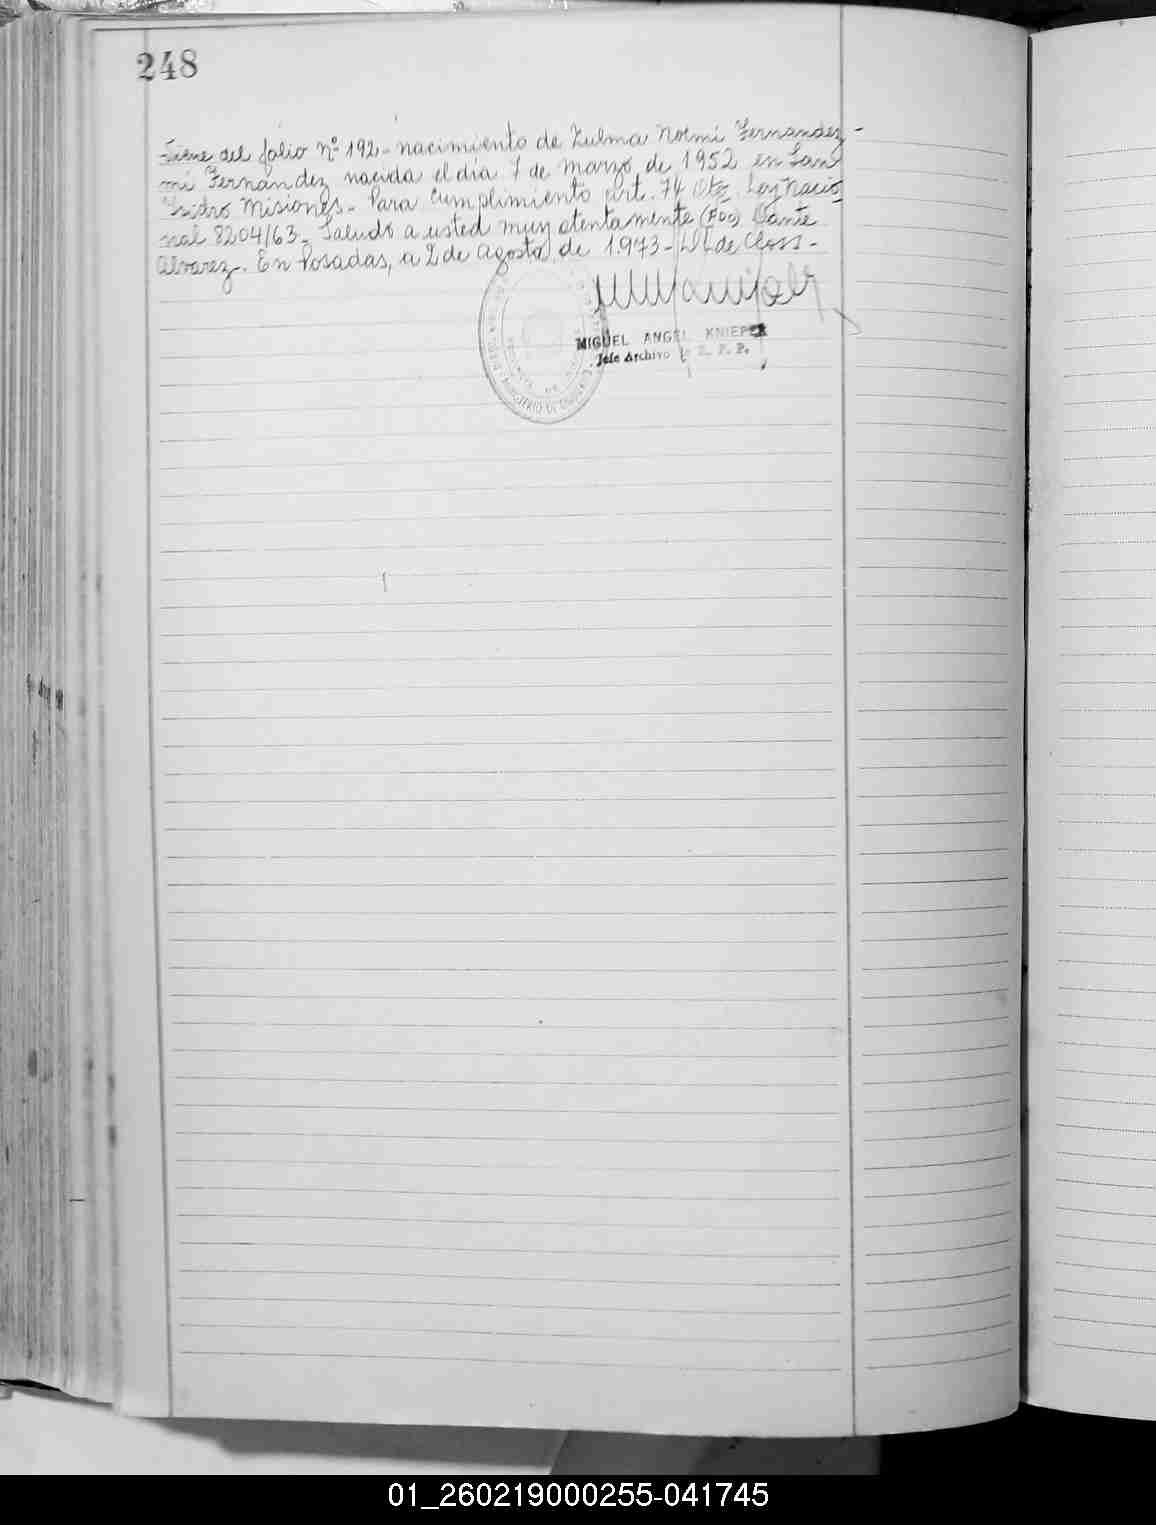 248
Viene del folio Nº 192 - nacimiento de Zulma Noemí Fernandez -
mí Fernández nacida el día 7 de marzo de 1952 en San
Isidro Misiones - Para Cumplimiento art. 74 Ley Nacio
nal 8204/63 - Saludo a usted muy atentamente (FDO) Dante
Alvarez. En Posadas, a 2 de Agosto de 1973 -
MIGUEL ANGEL KNIEPER
Jefe Archivo R. P. P.
01_260219000255-041745